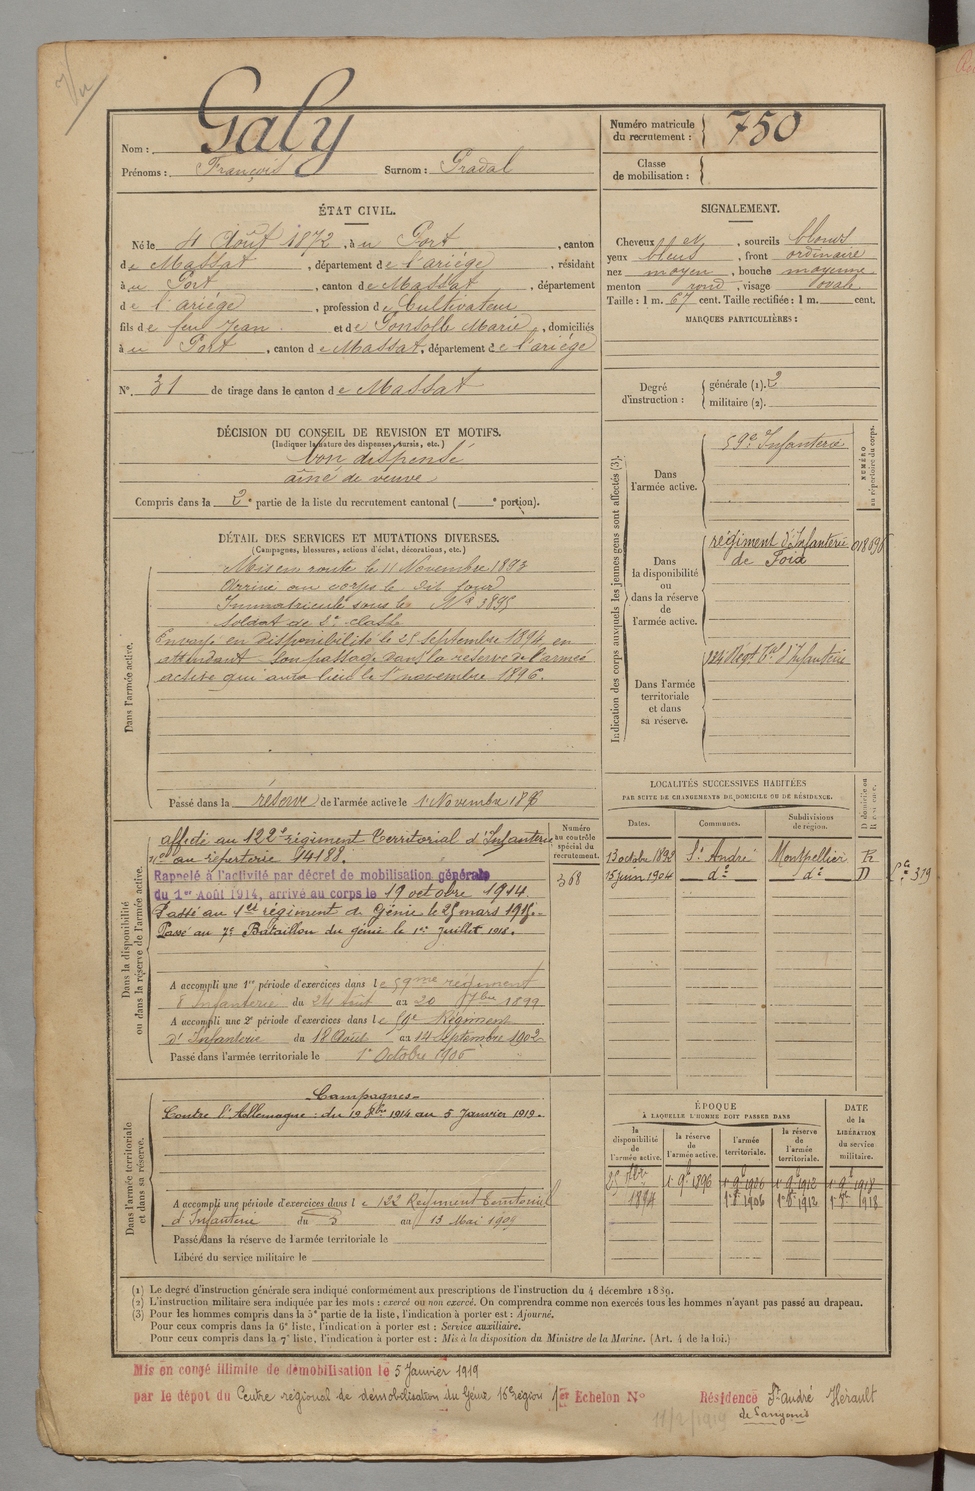 Vu
Nom : Galy
Prénoms : François Surnom : Gradal
Numéro matricule du recrutement : 750
Classe de mobilisation :
ÉTAT CIVIL.
Né le 4 Août 1872, à u Port, canton
de Massat, département de l'ariége, résidant
à u Port, canton de Massat, département
de l'ariége, profession de Cultivateur
fils de feu Jean et de Gonsolle Marie, domiciliés
à u Port, canton de Massat, département de l'ariége
N° 31 de tirage dans le canton de Massat
DÉCISION DU CONSEIL DE REVISION ET MOTIFS.
(Indiquer la nature des dispenses, sursis, etc.)
bon dispensé
aîné de veuve
Compris dans la 2e partie de la liste du recrutement cantonal ( e portion).
DÉTAIL DES SERVICES ET MUTATIONS DIVERSES.
(Campagnes, blessures, actions d'éclat, décorations, etc.)
Dans l'armée active.
Mis en route le 11 Novembre 1893
Arrivé au corps le dit jour
Immatriculé sous le No 3895
Soldat de 2e classe
Envoyé en disponibilité le 25 septembre 1894 en
attendant son passage dans la réserve de l'armée
active qui aura lieu le 1 novembre 1896.
Passé dans la réserve de l'armée active le 1 Novembre 1896
Dans la disponibilité ou dans la réserve de l'armée active.
affecté au 122e régiment territorial d'Infanterie
no au répertoire 14188.
Rappelé à l'activité par décret de mobilisation générale
du 1er Août 1914, arrivé au corps le 19 octobre 1914.
Passé au 1er régiment de Génie le 25 mars 1915.
Passé au 7e Bataillon du génie le 1er juillet 1916.
Numéro au contrôle spécial du recrutement.
368
A accompli une 1re période d'exercices dans le 59me régiment
d'Infanterie du 24 Août au 20 7bre 1899
A accompli une 2e période d'exercices dans le 59e Régiment
d'Infanterie du 18 Août au 14 Septembre 1902
Passé dans l'armée territoriale le 1er Octobre 1906
Dans l'armée territoriale et dans sa réserve.
Campagnes
Contre l'Allemagne : du 19 8bre 1914 au 5 Janvier 1919.
A accompli une période d'exercices dans le 122 Regiment Territorial
d'Infanterie du 5 au 13 Mai 1909
Passé dans la réserve de l'armée territoriale le
Libéré du service militaire le
SIGNALEMENT.
Cheveux et, sourcils blonds
yeux bleus, front ordinaire
nez moyen, bouche moyenne
menton rond, visage ovale
Taille : 1 m. 67 cent. Taille rectifiée : 1 m. cent.
MARQUES PARTICULIÈRES :
Degré d'instruction : générale (1). 2
militaire (2).
Indication des corps auxquels les jeunes gens sont affectés (3).
NUMÉRO au répertoire du corps.
Dans l'armée active.
59e Infanterie
Dans la disponibilité ou dans la réserve de l'armée active.
régiment d'Infanterie
de Foix
Dans l'armée territoriale et dans sa réserve.
124 Regt Tal d'Infanterie
LOCALITÉS SUCCESSIVES HABITÉES
PAR SUITE DE CHANGEMENTS DE DOMICILE OU DE RÉSIDENCE.
Dates. Communes. Subdivisions de région. D domicile ou R résidence.
13 octobre 1898 St André Montpellier R
15 juin 1904 do do D
319
ÉPOQUE
À LAQUELLE L'HOMME DOIT PASSER DANS
DATE de la LIBÉRATION du service militaire.
la disponibilité de l'armée active. la réserve de l'armée active. l'armée territoriale. la réserve de l'armée territoriale.
25 7bre 1894 1er 9e 1896
1906 1912 1918
(1) Le degré d'instruction générale sera indiqué conformément aux prescriptions de l'instruction du 4 décembre 1889.
(2) L'instruction militaire sera indiquée par les mots : exercé ou non exercé. On comprendra comme non exercés tous les hommes n'ayant pas passé au drapeau.
(3) Pour les hommes compris dans la 5e partie de la liste, l'indication à porter est : Ajourné.
Pour ceux compris dans la 6e liste, l'indication à porter est : Service auxiliaire.
Pour ceux compris dans la 7e liste, l'indication à porter est : Mis à la disposition du Ministre de la Marine. (Art. 4 de la loi.)
Mis en congé illimité de démobilisation le 5 Janvier 1919
par le dépot du Centre régional de démobilisation du Génie 16e région 1er Echelon N° Résidence St André Hérault
de Sangonis
11/2/1919